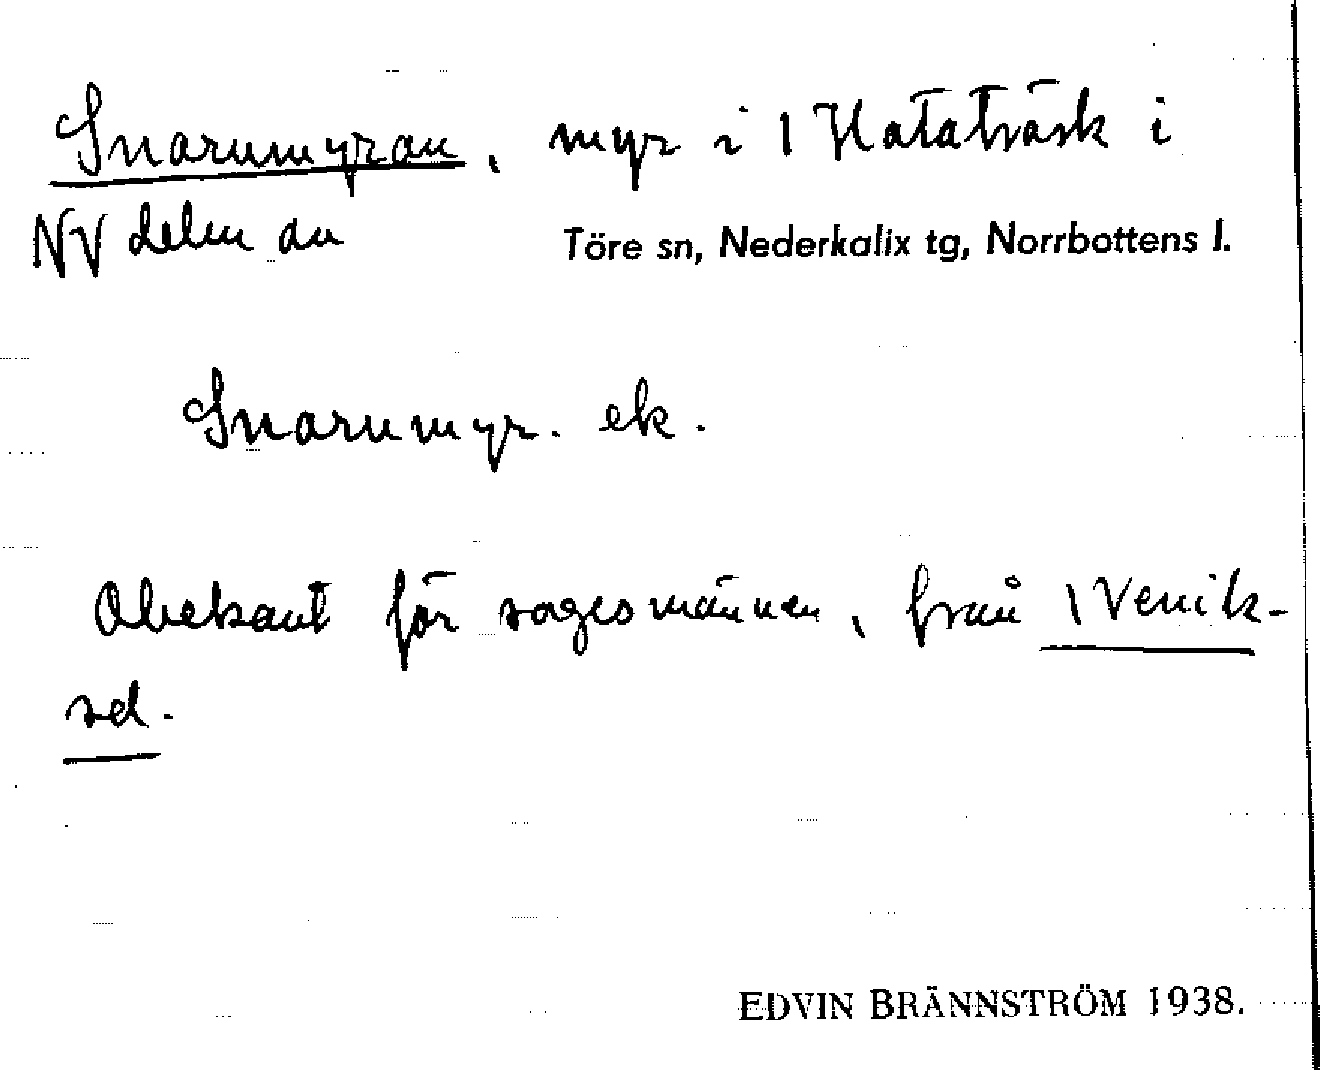 Snarumyran, myr i 1 Hataträsk i
NV delen av
Töre sn, Nederkalix tg, Norrbottens l.
Snarumyr. ek.
Obekant för sagesmännen, från 1 Venik-
sel.
EDVIN BRÄNNSTRÖM 1938.